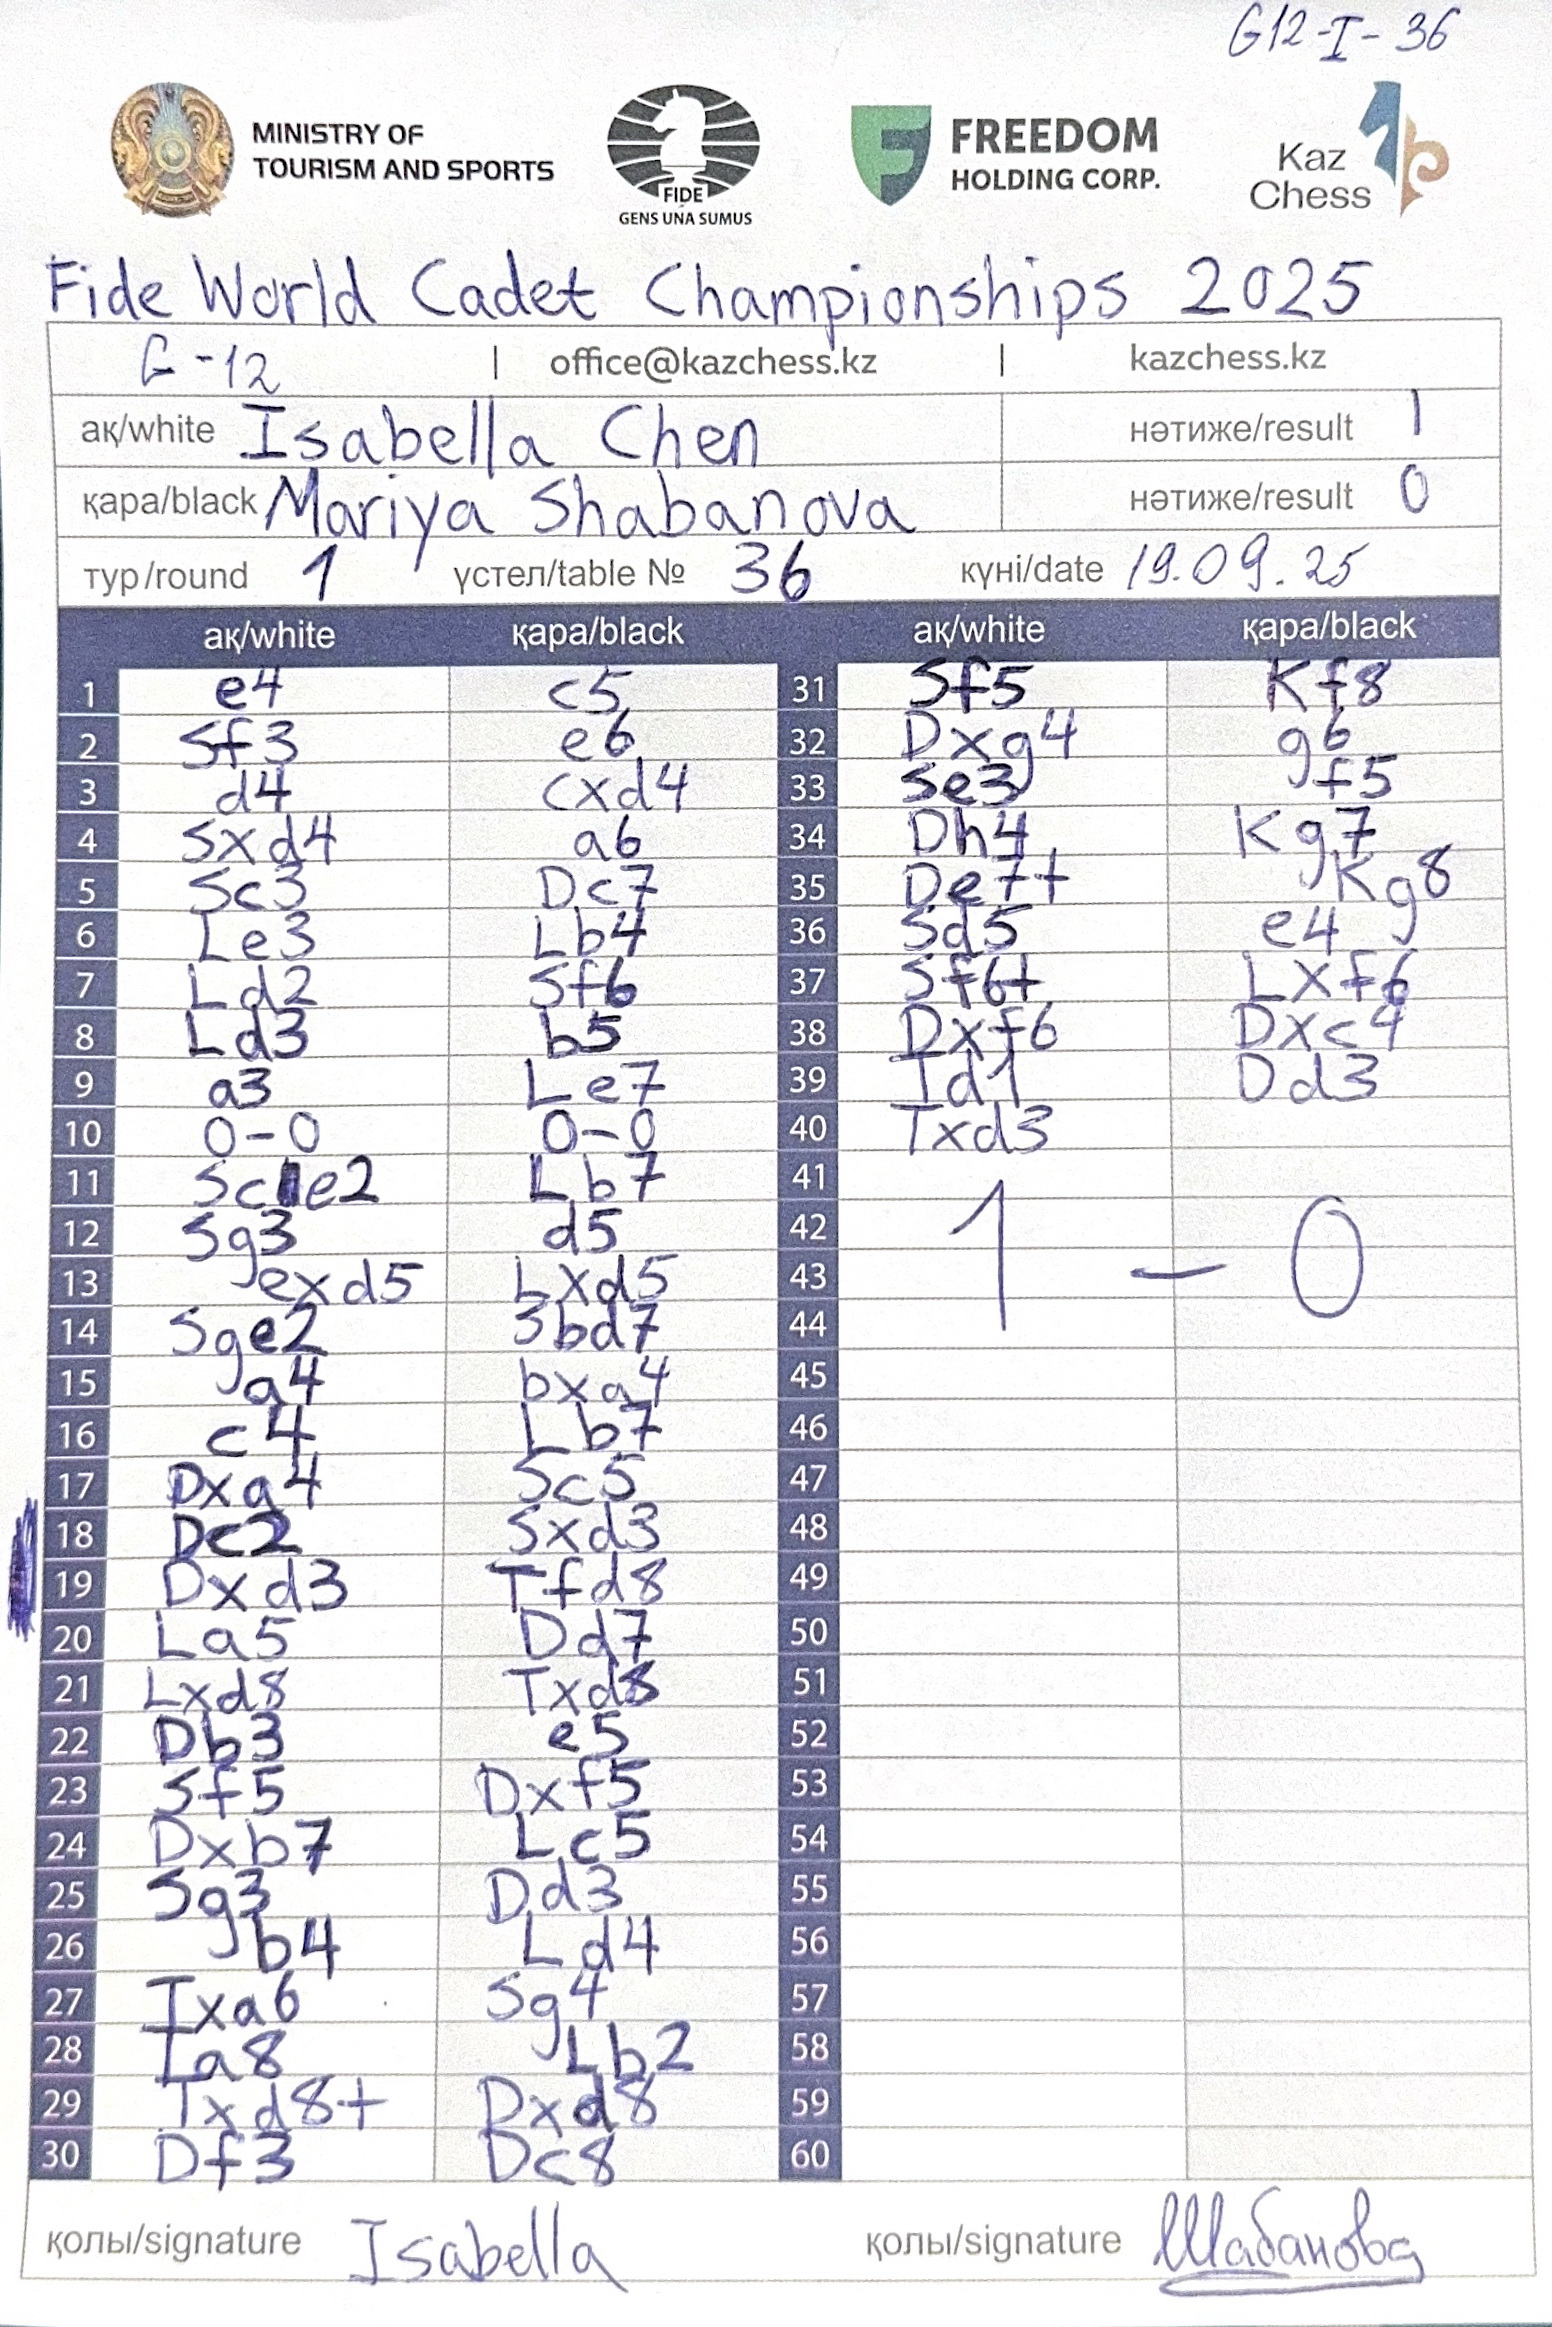 G12-I-36
MINISTRY OF
TOURISM AND SPORTS
FIDE
GENS UNA SUMUS
FREEDOM
HOLDING CORP.
Kaz
Chess
Fide World Cadet Championships 2025
G-12 | office@kazchess.kz | kazchess.kz
ақ/white Isabella Chen нәтиже/result 1
қара/black Mariya Shabanova нәтиже/result 0
тур/round 1 үстел/table № 36 күні/date 19.09.25
ақ/white қара/black ақ/white қара/black
1 e4 c5 31 Sf5 Kf8
2 Sf3 e6 32 Dxg4 g6
3 d4 cxd4 33 Se3 f5
4 Sxd4 a6 34 Dh4 Kg7
5 Sc3 Dc7 35 De7+ Kg8
6 Le3 Lb4 36 Sd5 e4
7 Ld2 Sf6 37 Sf6+ Lxf6
8 Ld3 b5 38 Dxf6 Dxc4
9 a3 Le7 39 Td1 Dd3
10 0-0 0-0 40 Txd3
11 Sce2 Lb7 41
12 Sg3 d5 42 1 - 0
13 exd5 Lxd5 43
14 Sge2 Sbd7 44
15 a4 bxa4 45
16 c4 Lb7 46
17 Dxa4 Sc5 47
18 Dc2 Sxd3 48
19 Dxd3 Tfd8 49
20 La5 Dd7 50
21 Lxd8 Txd8 51
22 Db3 e5 52
23 Sf5 Dxf5 53
24 Dxb7 Lc5 54
25 Sg3 Dd3 55
26 b4 Ld4 56
27 Txa6 Sg4 57
28 Ta8 Lb2 58
29 Txd8+ Dxd8 59
30 Df3 Dc8 60
қолы/signature Isabella қолы/signature Шабанова